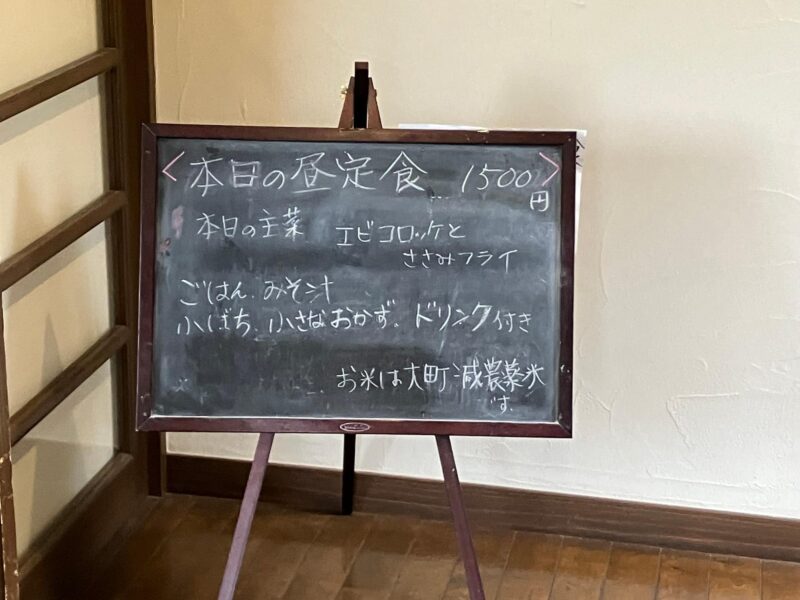 <本日の昼定食 1500円>
本日の主菜 エビコロッケと
ささみフライ
ごはん、みそ汁
小ばち、小さなおかず。ドリンク付き
お米は大町減農薬米
です。